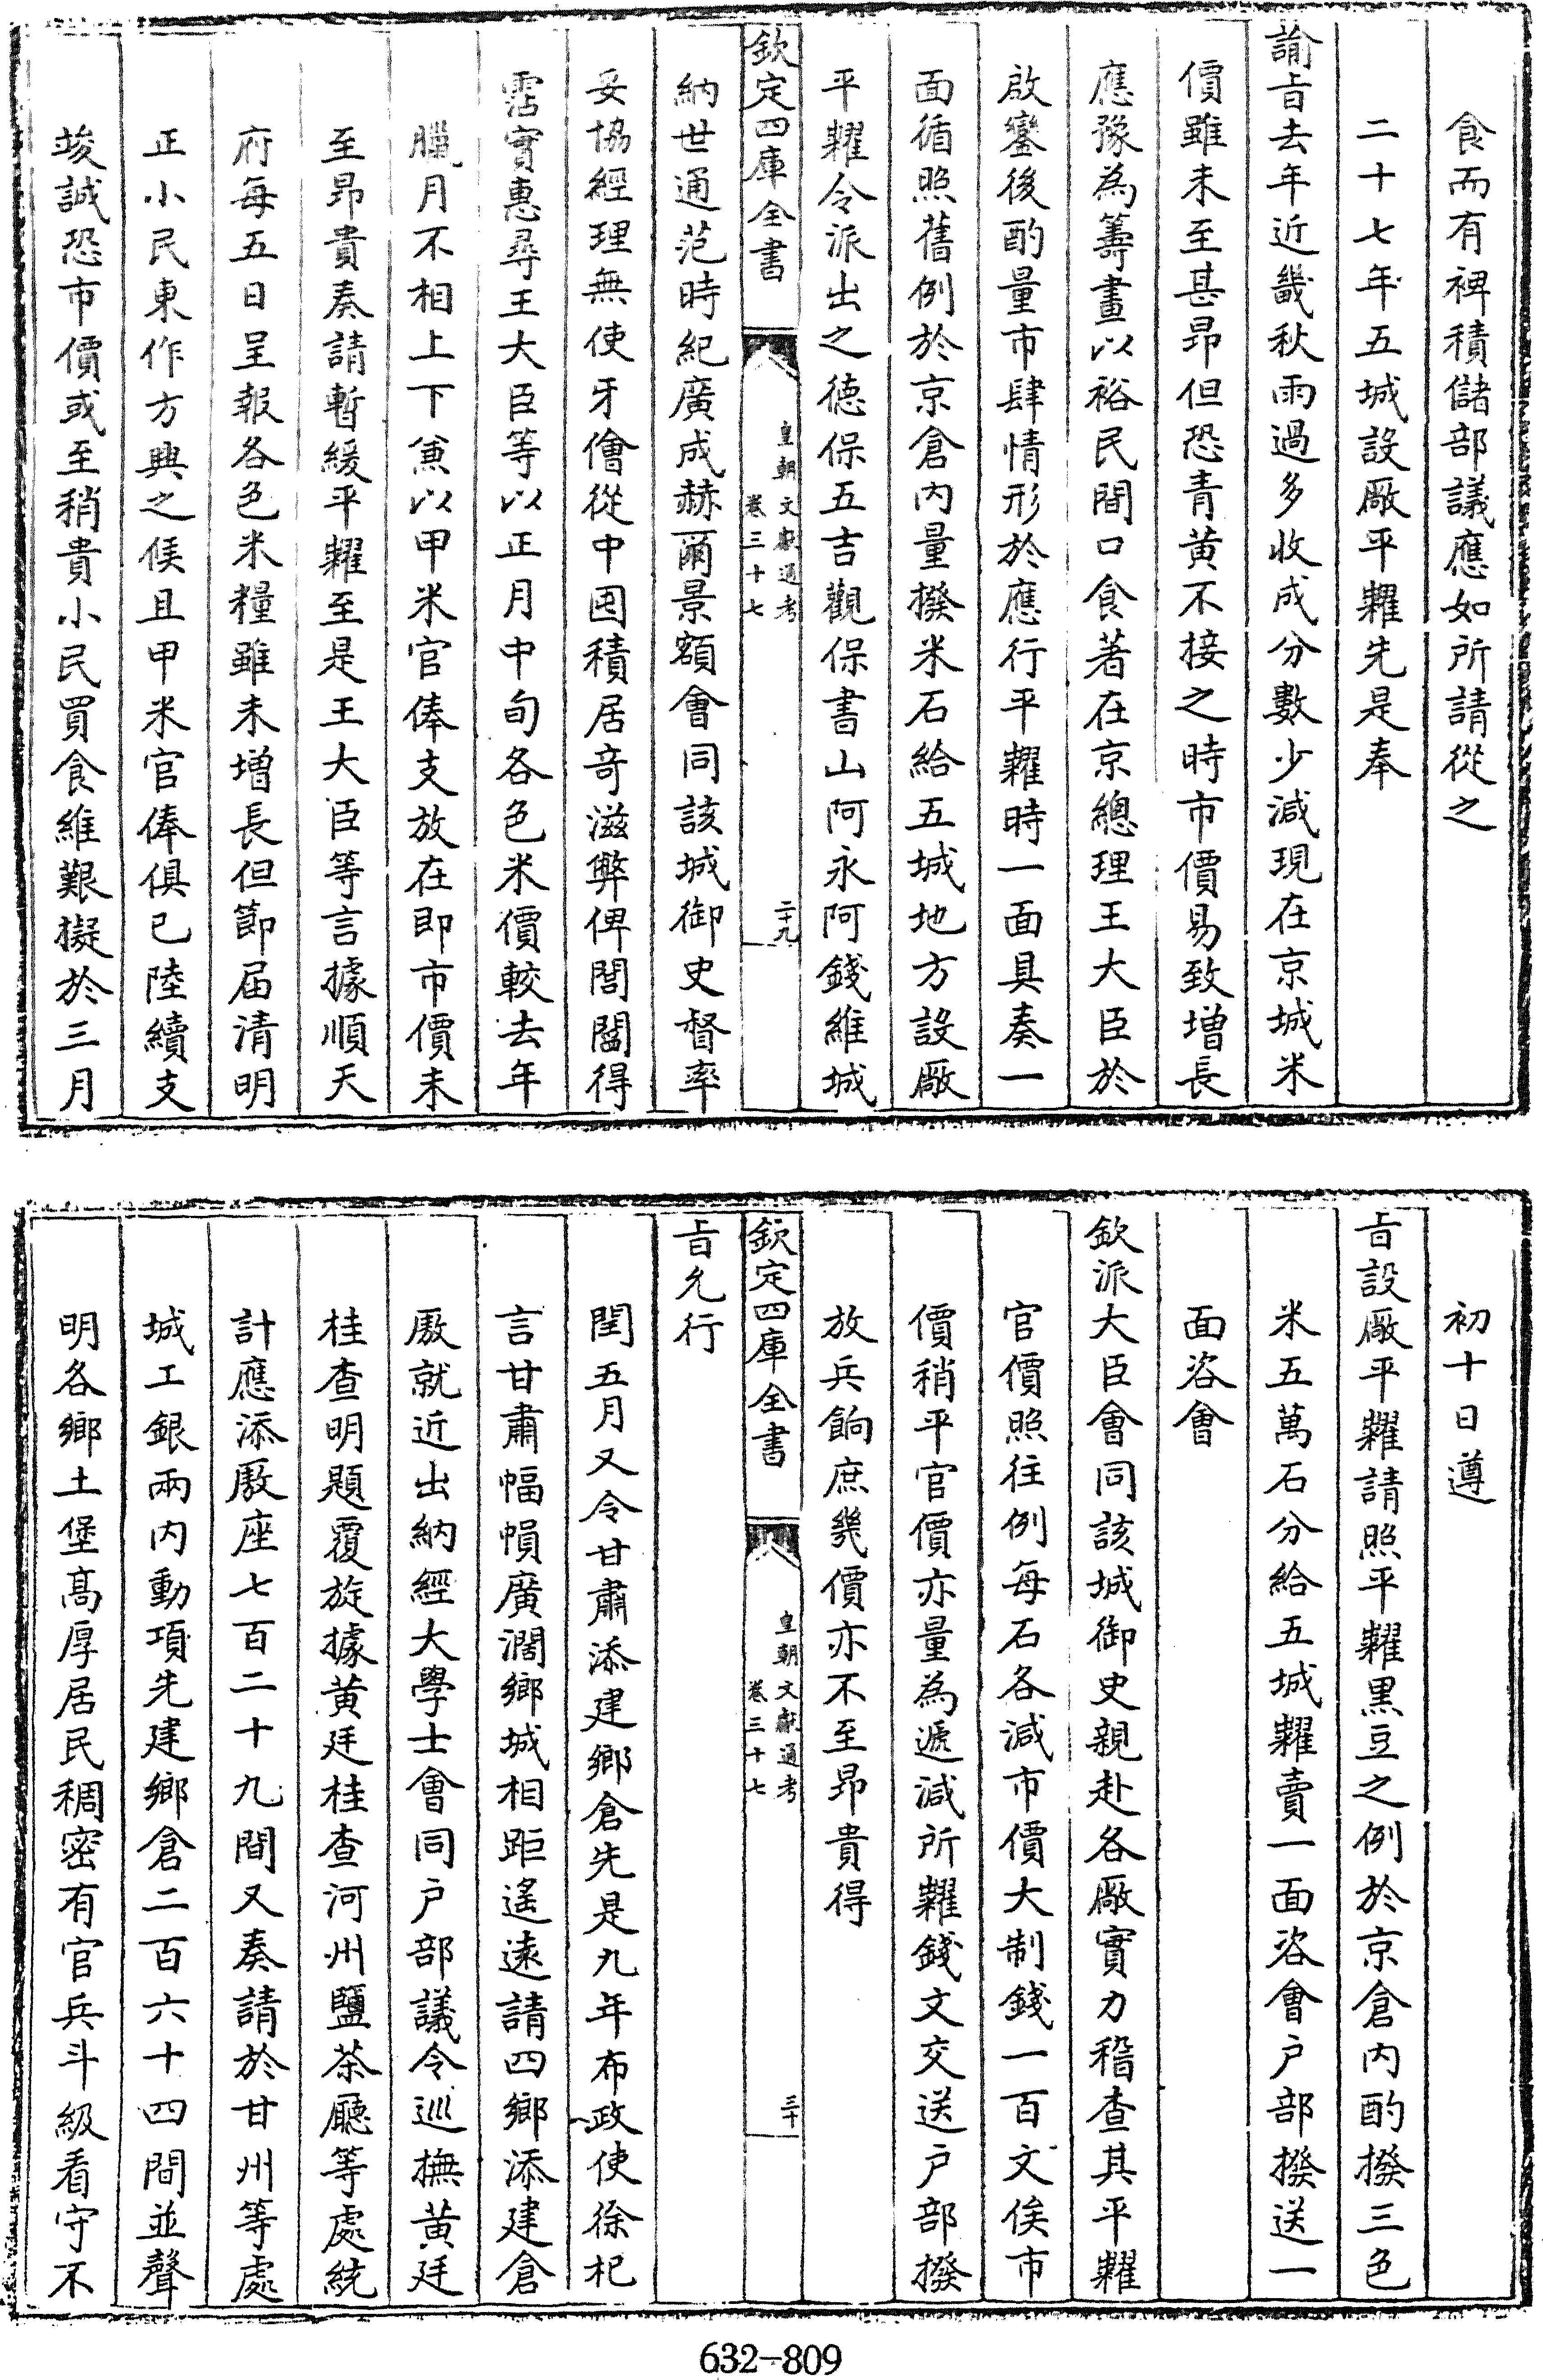 食而有裨積儲部議應如所請從之
二十七年五城設厰平糶先是奉
諭旨去年近畿秋雨過多收成分數少減現在京城米
價雖未至甚昂但恐青黄不接之時市價易致増長
應豫為籌畫以裕民間口食著在京總理王大臣於
啟鑾後酌量市肆情形於應行平糶時一面具奏一
面循照舊例於京倉内量撥米石給五城地方設厰
平糶令派出之德保五吉觀保書山阿永阿錢維城
欽定四庫全書
皇朝文獻通考
卷三十七
二十九
納世通范時紀廣成赫爾景額會同該城御史督率
妥協經理無使牙儈從中囤積居竒滋弊俾閭閻得
霑實惠尋王大臣等以正月中旬各色米價較去年
臘月不相上下兼以甲米官俸支放在即市價未
至昂貴奏請暫緩平糶至是王大臣等言據順天
府每五日呈報各色米糧雖未増長但節届清明
正小民東作方興之候且甲米官俸俱已陸續支
竣誠恐市價或至稍貴小民買食維艱擬於三月
初十日遵
旨設厰平糶請照平糶黒豆之例於京倉内酌撥三色
米五萬石分給五城糶賣一面咨會户部撥送一
面咨會
欽派大臣會同該城御史親赴各厰實力稽查其平糶
官價照往例每石各減市價大制錢一百文俟市
價稍平官價亦量為遞減所糶錢文交送户部撥
放兵餉庶幾價亦不至昂貴得
欽定四庫全書
皇朝文獻通考
卷三十七
三十
旨允行
閏五月又令甘肅添建鄉倉先是九年布政使徐杞
言甘肅幅幀廣濶鄉城相距遙遠請四鄉添建倉
厫就近出納經大學士會同户部議令巡撫黄廷
桂查明題覆旋據黄廷桂查河州鹽茶廳等處統
計應添厫座七百二十九間又奏請於甘州等處
城工銀兩内動項先建鄉倉二百六十四間並聲
明各鄉土堡髙厚居民稠密有官兵斗級看守不
632-809